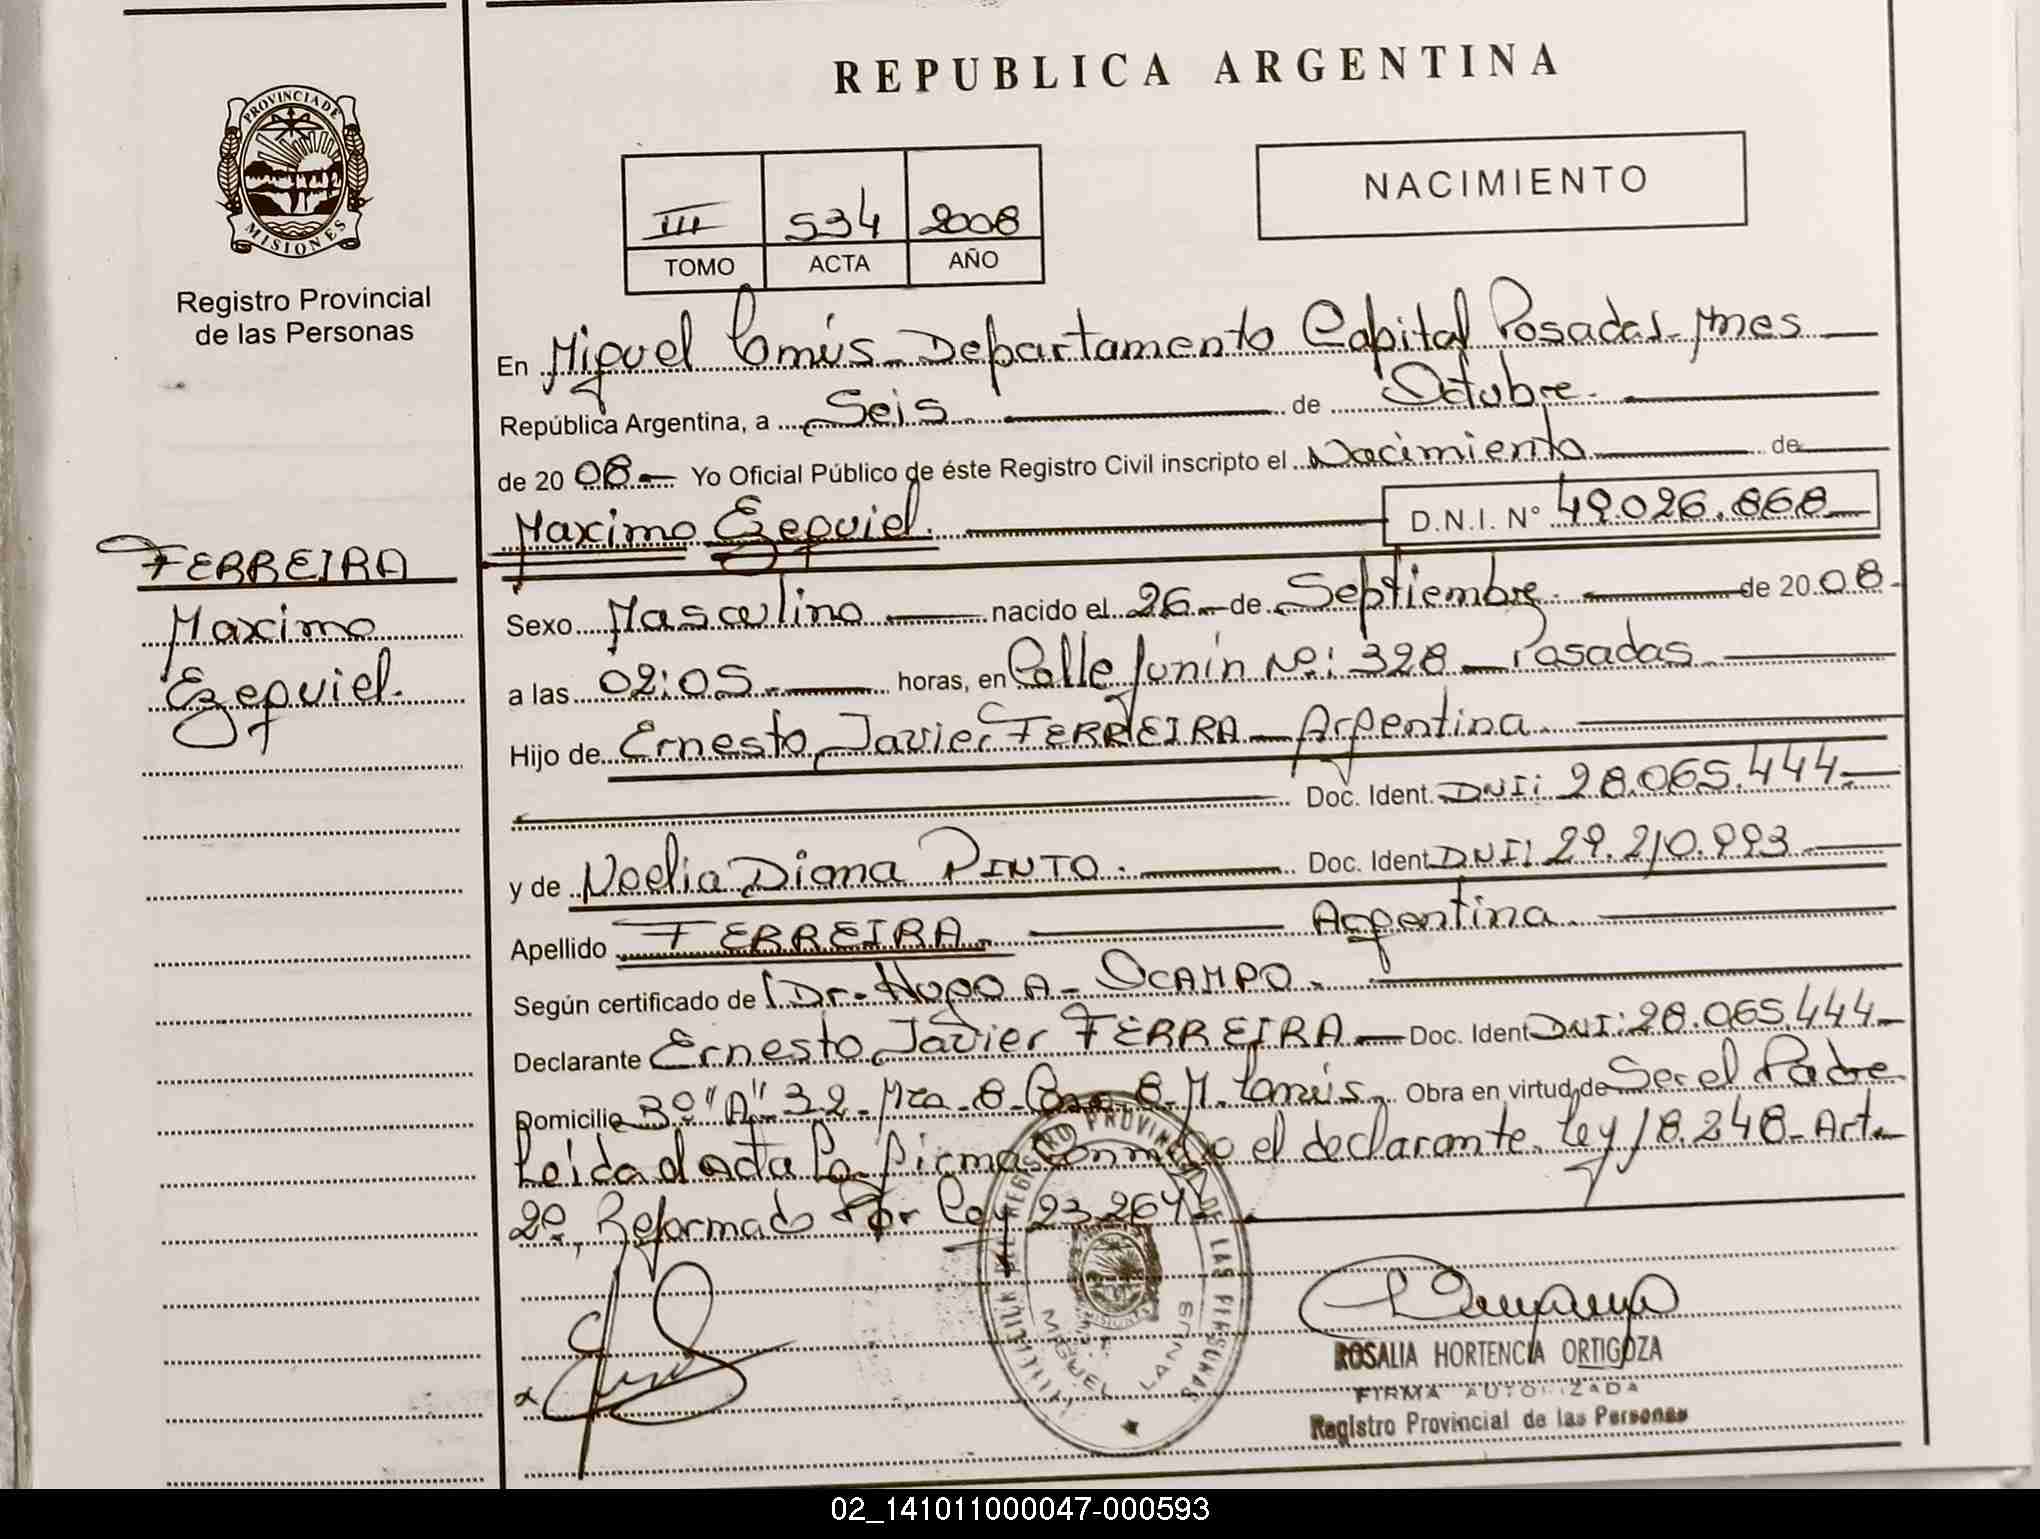 REPUBLICA ARGENTINA
PROVINCIA DE
MISIONES
Registro Provincial
de las Personas
III 534 2008
TOMO ACTA AÑO
NACIMIENTO
En Miguel Lanús - Departamento Capital Posadas - Mnes
República Argentina, a Seis de Octubre.
de 20 08 - Yo Oficial Público de éste Registro Civil inscripto el Nacimiento de
Maximo Ezequiel. D.N.I. N° 49.026.868
FERREIRA
Maximo
Ezequiel.
Sexo Masculino nacido el 26 - de Septiembre. de 20 08.
a las 02:05 horas, en Calle Junín Nº: 328 - Posadas
Hijo de Ernesto Javier FERREIRA - Argentina
Doc. Ident. DNI: 28.065.444.-
y de Noelia Diana PINTO. Doc. Ident. DNI: 29.210.993
Apellido FERREIRA. Argentina
Según certificado de Dr. Hugo A - OCAMPO.
Declarante Ernesto Javier FERREIRA - Doc. Ident DNI: 28.065.444 -
Domicilio 3º "A" 32 - Mza - 8 - 8 - M. Lanús. Obra en virtud de Ser el Padre
Leida el acta La firma Conmigo el declarante. Ley 18.248 - Art.
2º. Reformado Por Ley 23.264
MIGUEL LANUS
ROSALIA HORTENCIA ORTIGOZA
FIRMA AUTORIZADA
Registro Provincial de las Personas
02_141011000047-000593